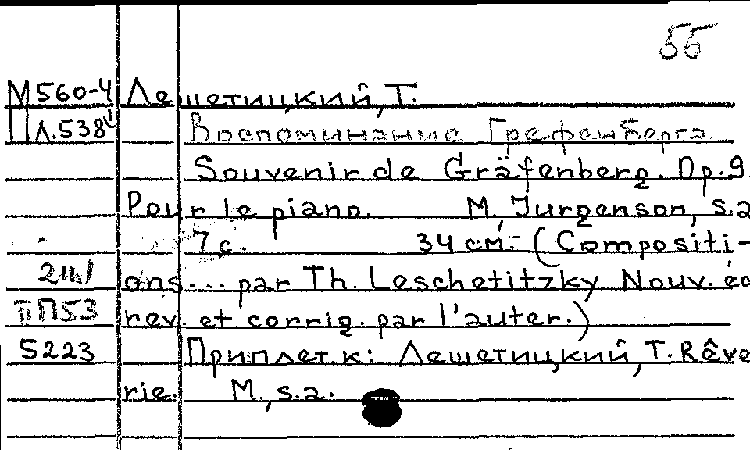 55
М560-4 Лешетицкий, Т.
Пл.538 Воспоминание Грефенберга
Souvenir de Gräfenberg. Op.9
Pour le piano. M., Jurgenson, s.a
7 с. 34 см. - (Compositi-
ons... par Th. Leschetitzky Nouv. éd
ПП53 rev. et corrig. par l'auter.)
5223 Приплет. к: Лешетицкий, Т. Rêve
rie. M., s.a.